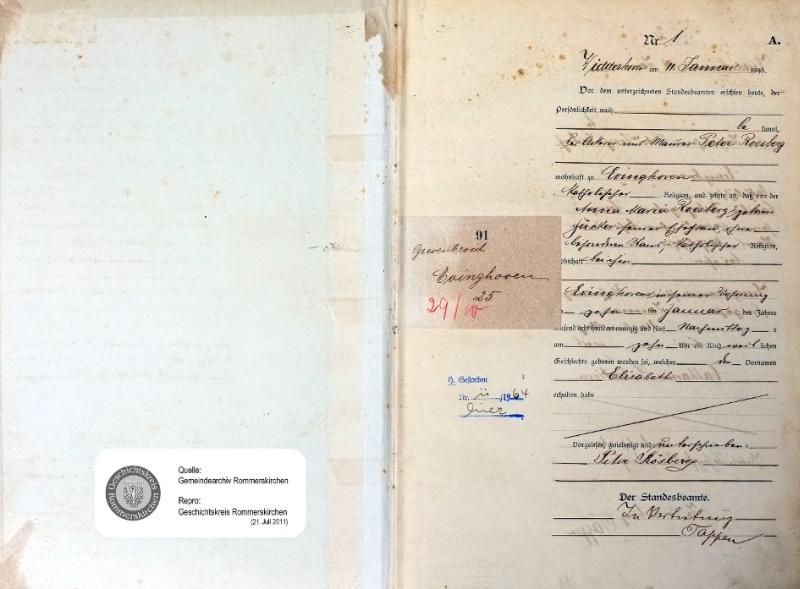 Nr. 1
A.
am 11. Januar 1895.
Vor dem unterzeichneten Standesbeamten erschien heute, der
Persönlichkeit nach
be kannt,
der Ackerer und Maurer Peter Roesberg
wohnhaft zu Evinghoven
katholischer Religion, und zeigte an, daß von der
Anna Maria Roesberg, geborene
seiner Ehefrau, ohne
besonderen Stand, katholischer Religion,
wohnhaft bei ihm
zu Evinghoven in seiner Wohnung
am zehn ten Januar des Jahres
tausend acht hundert neunzig und fünf Nachmittag s
um zehn Uhr ein Kind weib lichen
Geschlechts geboren worden sei, welches den Vornamen
Elisabeth
erhalten habe
Vorgelesen, genehmigt und unterschrieben:
Peter Rösberg
Der Standesbeamte.
In Vertretung
Tappen
91
Grevenbroich
Evinghoven
25
29/IV
Gestorben
Nr. 11 /1964
Quelle:
Gemeindearchiv Rommerskirchen
Repro:
Geschichtskreis Rommerskirchen
(21. Juli 2011)
Geschichtskreis
Rommerskirchen